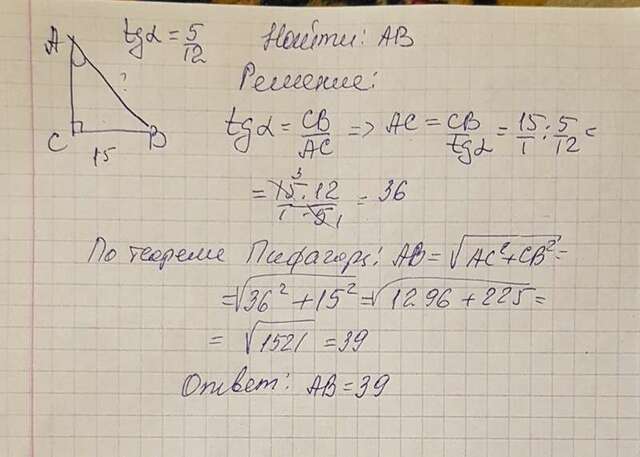 A
tgα = 5/12
Найти: AB
?
C
15
B
Решение:
tgα = CB/AC => AC = CB/tgα = 15/1 : 5/12 =
= 15 3 · 12 / 1 · 5 1 = 36
По теореме Пифагора: AB = √AC²+CB² =
= √36² + 15² = √1296 + 225 =
= √1521 = 39
Ответ: AB = 39